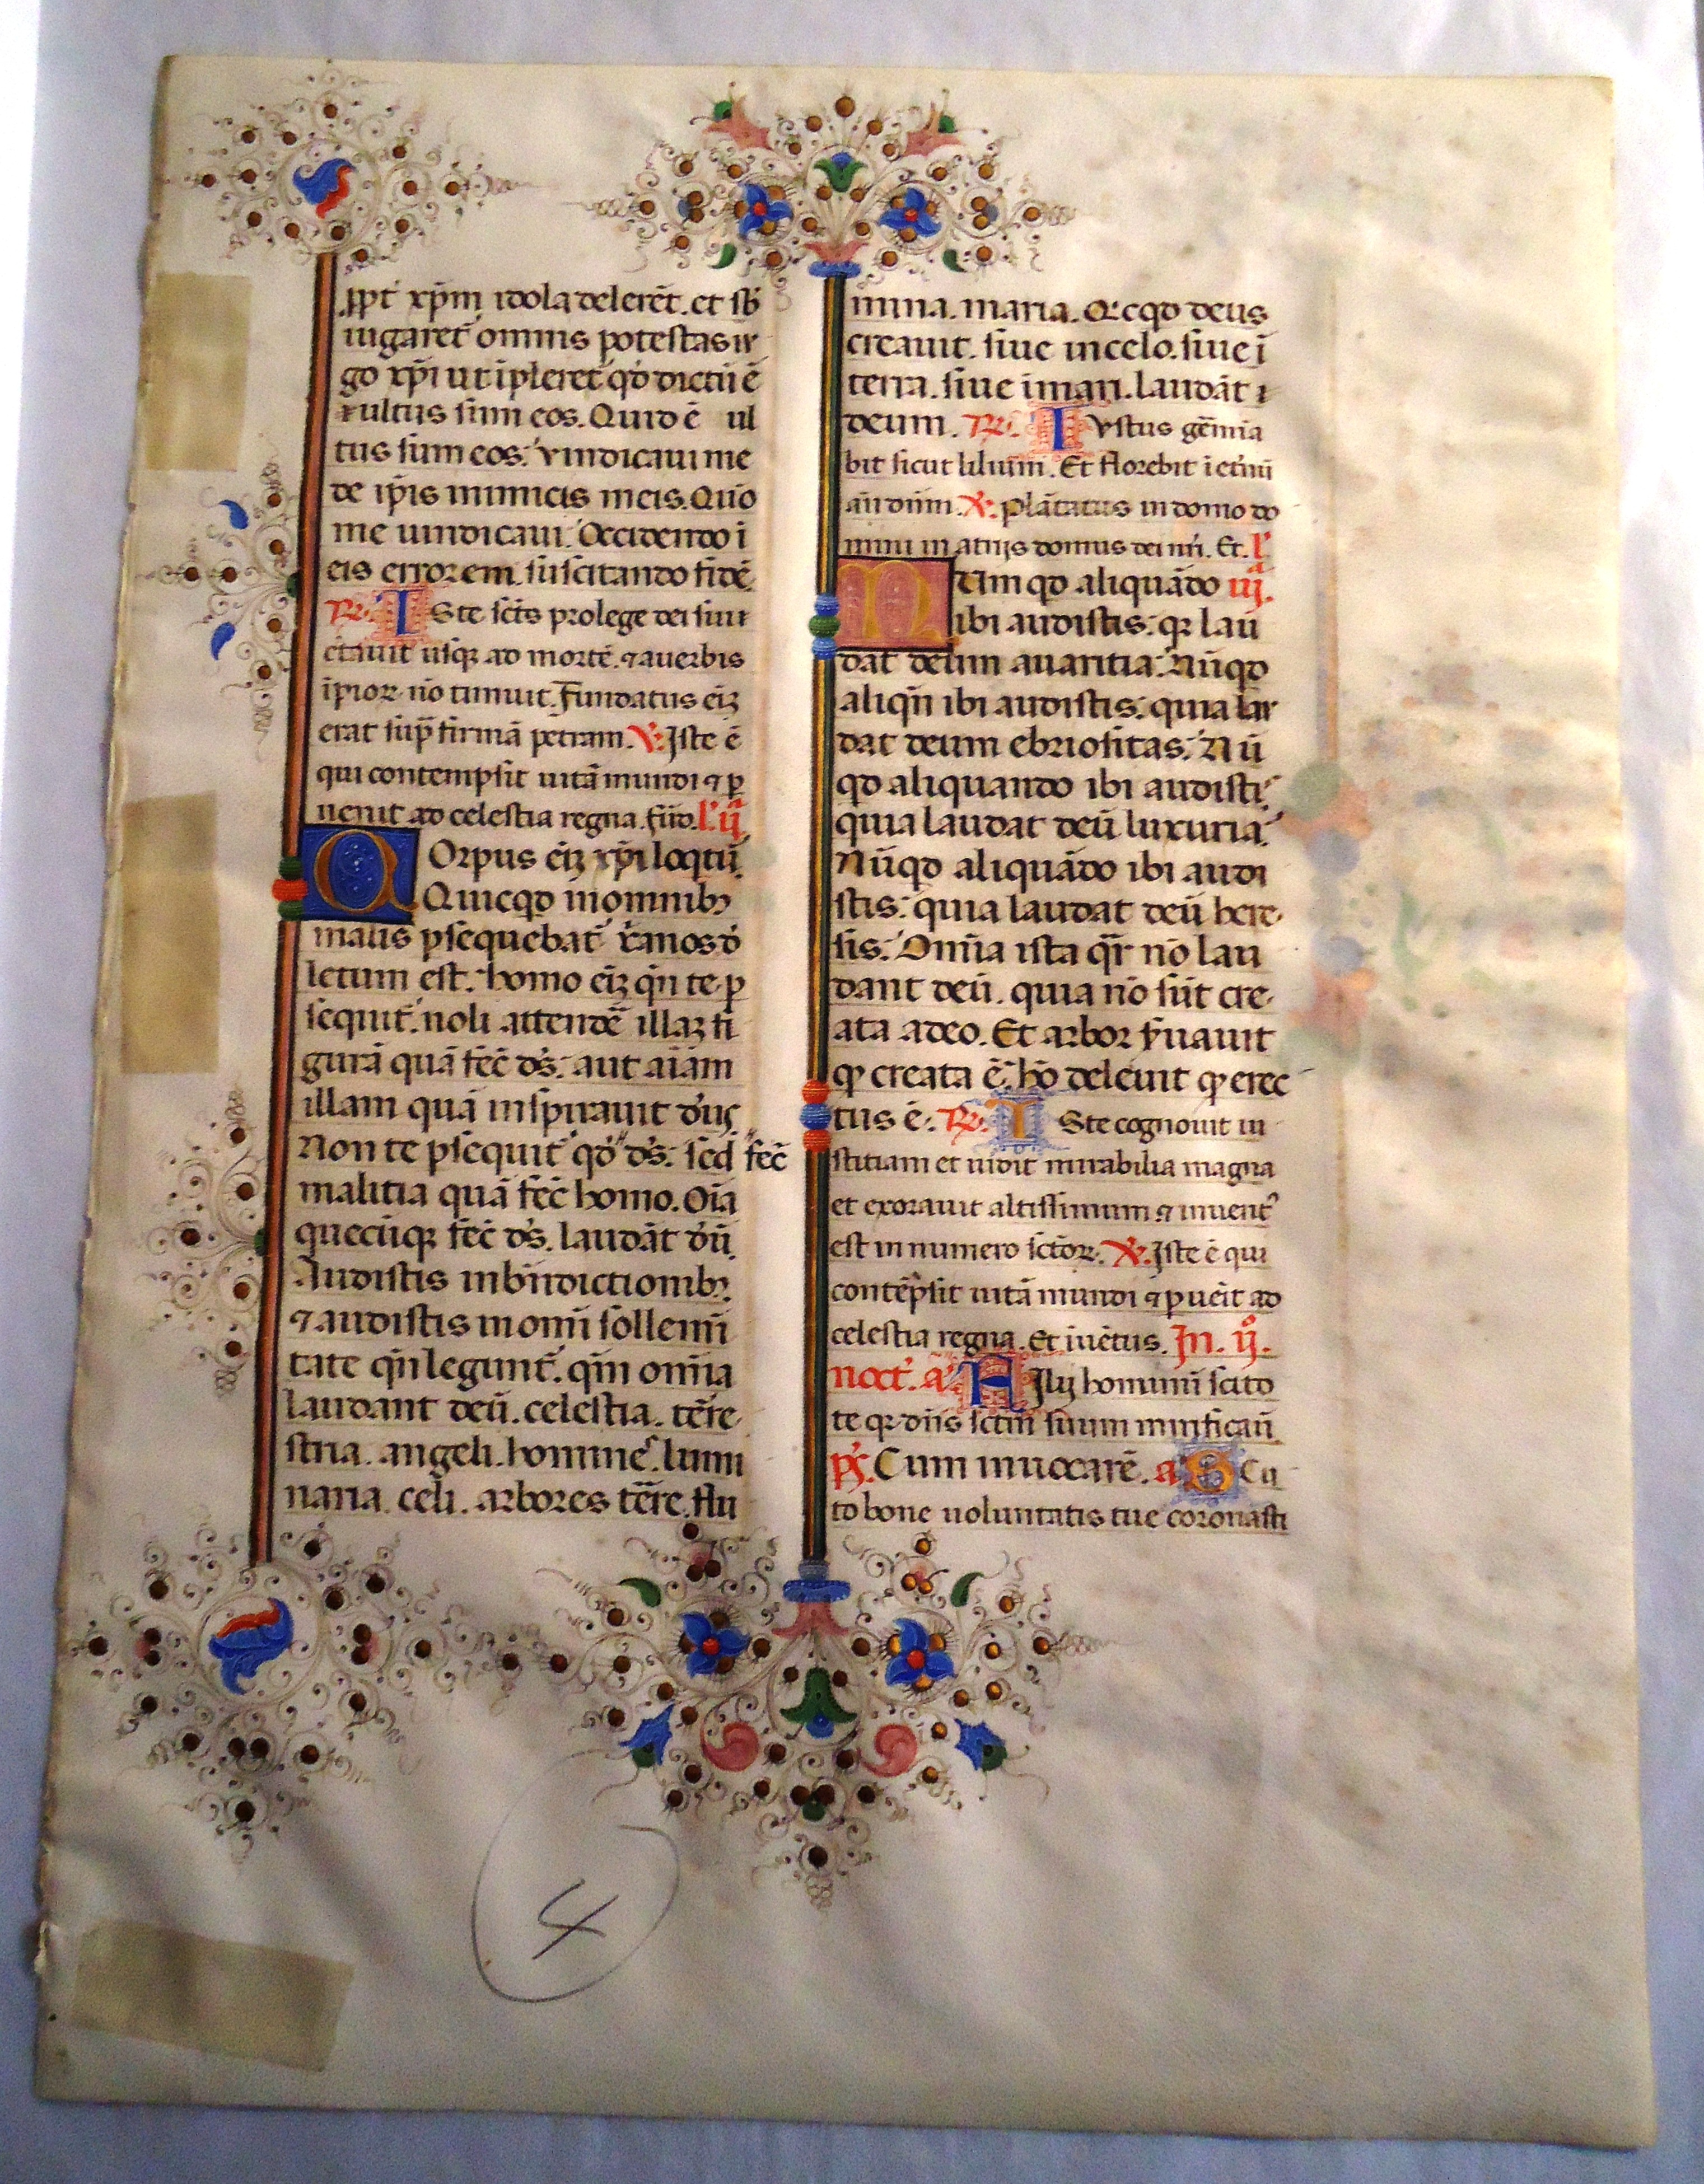 ꝓpt̃ xp̃m idola delerẽt. et sb̃
iugaret᷑ omnis potestas ir
go xp̃i ut ĩpleret᷑ qď dictũ ẽ
r ultus sum eos. Quid ẽ ul
tus sum eos: vindicaui me
de ip̃is inimicis meis. Quõ
me uindicaui: Occidendo ĩ
eis errorem. suscitando fidẽ.
R̃. ISte sc̃s pro lege dei sui
c̃tauit usq; ad mortẽ. ⁊ a uerbis
ĩpioꝝ nõ timuit. Fundatus eĩ
erat sup̃ firmã petram. V̇. Iste ẽ
qui contempsit uitã mundi ⁊ ꝑ
uenit ad celestia regna. fũd. l'. ij̃.
COrpus eĩ xp̃i loqtũ.
Quicqd in omnib;
malis ꝑsequebat᷑ x̃anos ď
letum est. homo eĩ qñ te ꝑ
sequit᷑. noli attendẽ illaꝫ fi
gurã quã fec̃ ds̃. aut aĩam
illam quã inspirauit dñs.
Non te ꝑsequit᷑ qď ds̃: sed fec̃
malitia quã fec̃ homo. Oĩa
quecũq; fec̃ ds̃. laudãt dũ.
Audistis in bñdictionib;
⁊ audistis in om̃i sollemni
tate qñ legunt᷑. qm̃ omia
laudant deũ. celestia. terre
stria. angeli. homines. lumi
naria celi. arbores terre. flu
mina. maria. Qcqd deus
creauit. siue in celo. siue ĩ
terra. siue ĩ mari. laudãt
deum. R̃. IVstus germia
bit sicut lilium. Et florebit ĩ etnũ
añ dñm. V̇. Plãtatus in domo do
mini in atrijs domus dei nr̃i. Et. l'.
NUmqd aliquãdo iij̃.
ibi audistis: qꝛ lau
dat deum auaritia: Nũqd
aliqñ ibi audistis: quia lau
dat deum ebriositas: Nũ
qd aliquando ibi audisti
quia laudat deũ luxuria:
Nũqd aliquãdo ibi audi
stis: quia laudat deũ here
sis: Omĩa ista qr̃ nõ lau
dant deũ. quia nõ sũt cre
ata a deo. Et arbor s̃uauit
ꝙ creata ẽ: hõ deleuit ꝙ erec
tus ẽ. R̃. ISte cognouit iu
stitiam et uidit mirabilia magna
et exorauit altissimum ⁊ inuent᷒
est in numero sctõꝝ. V̇. Iste ẽ qui
contẽpsit uitã mundi ⁊ ꝑueit ad
celestia regna. Et iuẽtus. In. ij̊.
noct̃. a᷑. FIlij hominũ scito
te qꝛ dñs sctm̃ suum mirificauĩ
ps̃. Cum inuocarẽ. a᷑ SCu
to bone uoluntatis tue coronasti
4